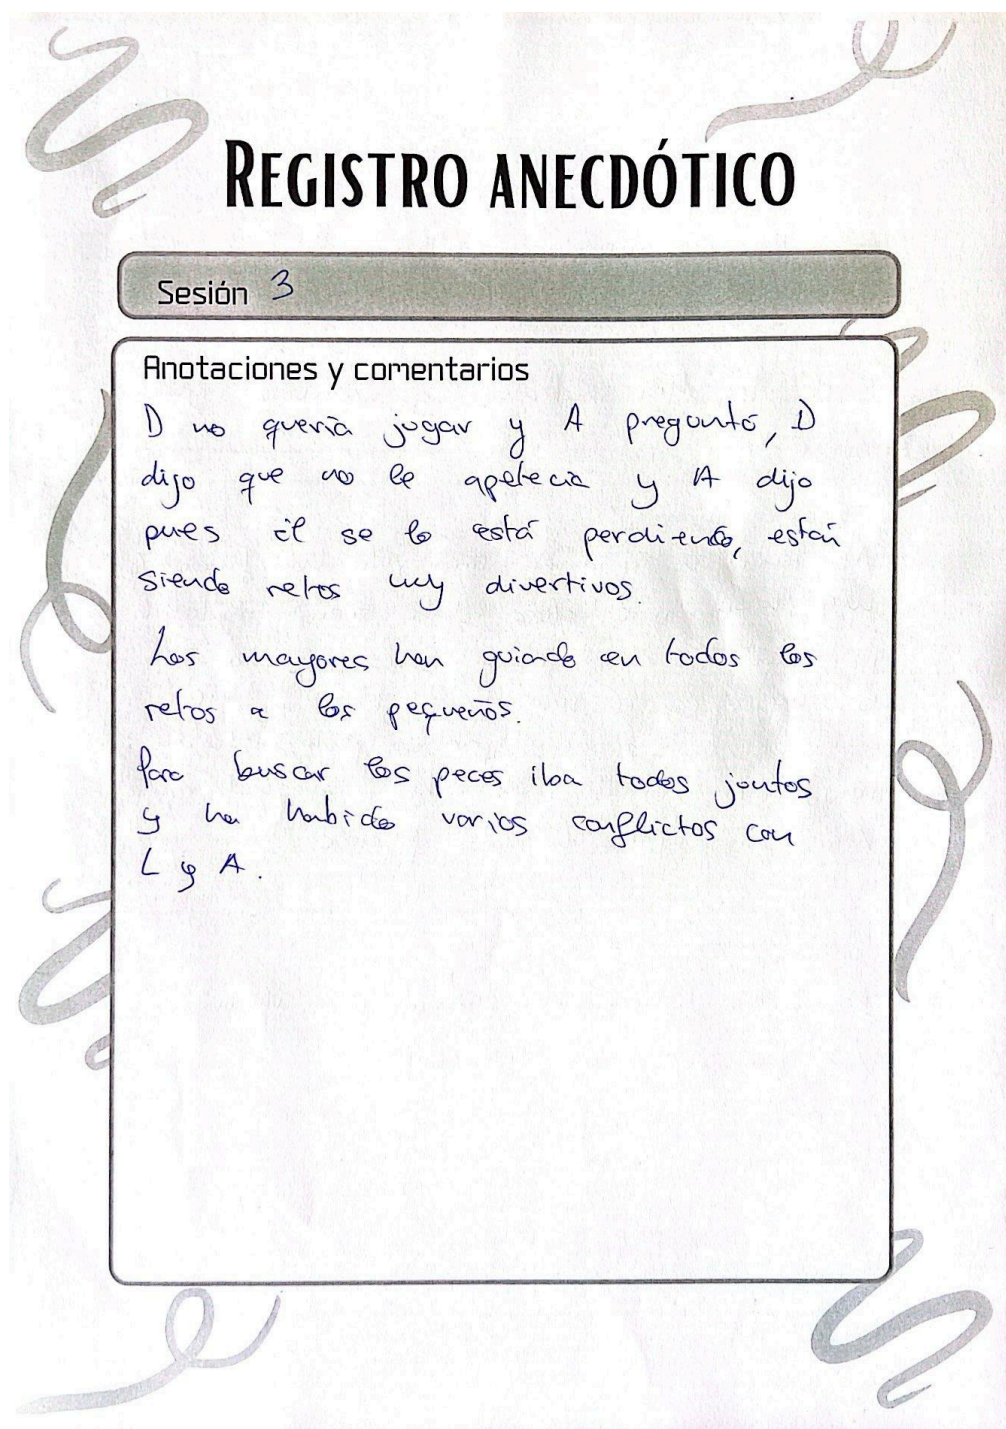 REGISTRO ANECDÓTICO
Sesión 3
Anotaciones y comentarios
D no quería jugar y A preguntó, D
dijo que no le apetecia y A dijo
pues él se lo está perdiendo, están
siendo retos muy divertivos.
Los mayores han guiado en todos los
retos a los pequeños.
Para buscar los peces iba todos juntos
y ha habido varios conflictos con
L y A.